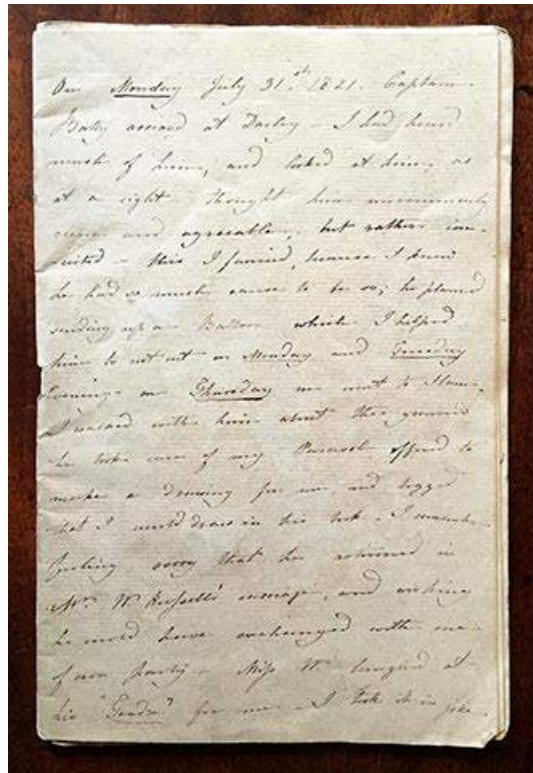 On Monday July 31.th 1821. Captain
Batty arrived at Darley - I had heard
much of him, and looked at him, as
at a sight thought him uncommonly
clever and agreeable, but rather con-
ceited - this I fancied, because I knew
he had so much cause to be so; he planned
sending up a Balloon which I helped
him to cut out on Monday and Tuesday
Evenings on Thursday we went to Ilam,
I walked with him about the grounds
he took care of my Parasol offered to
make a drawing for me and begged
that I would draw in his book - I remember
feeling sorry that he returned in
Mrs. W. carriage, and wishing
he could have exchanged with one
of our party - Miss W. laughed at
his for me - I took it in joke.